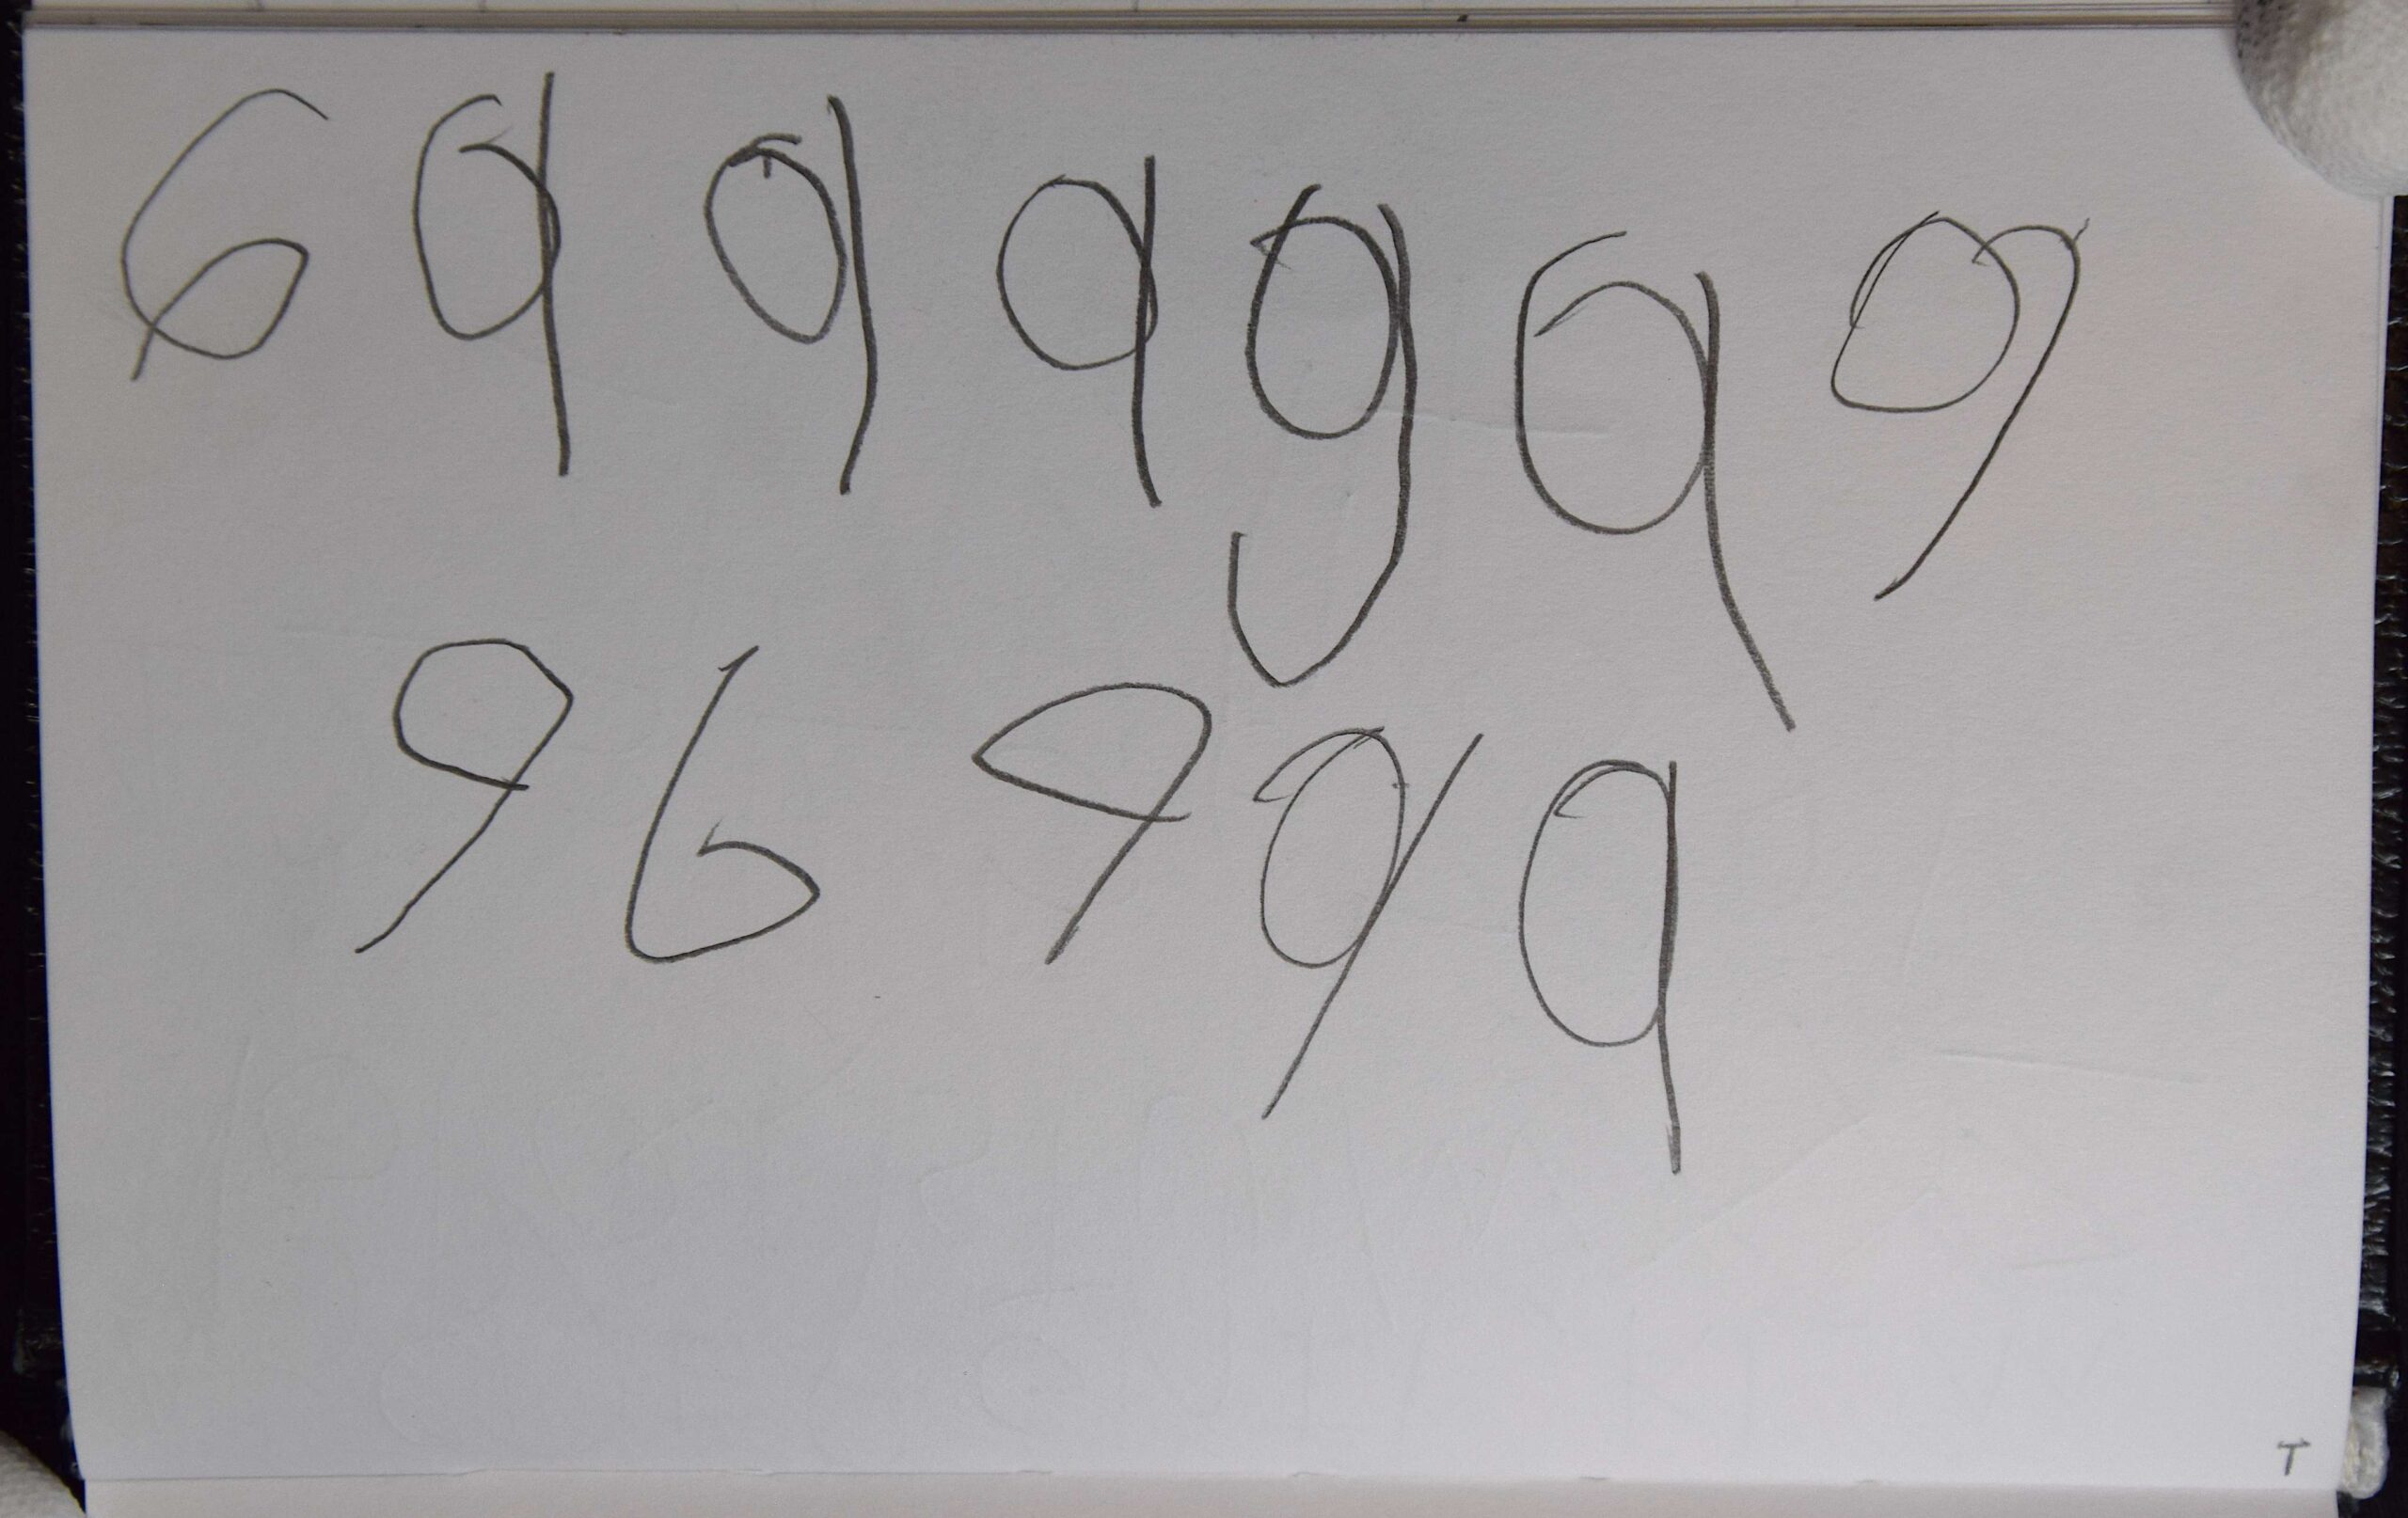 6999999
96999
T